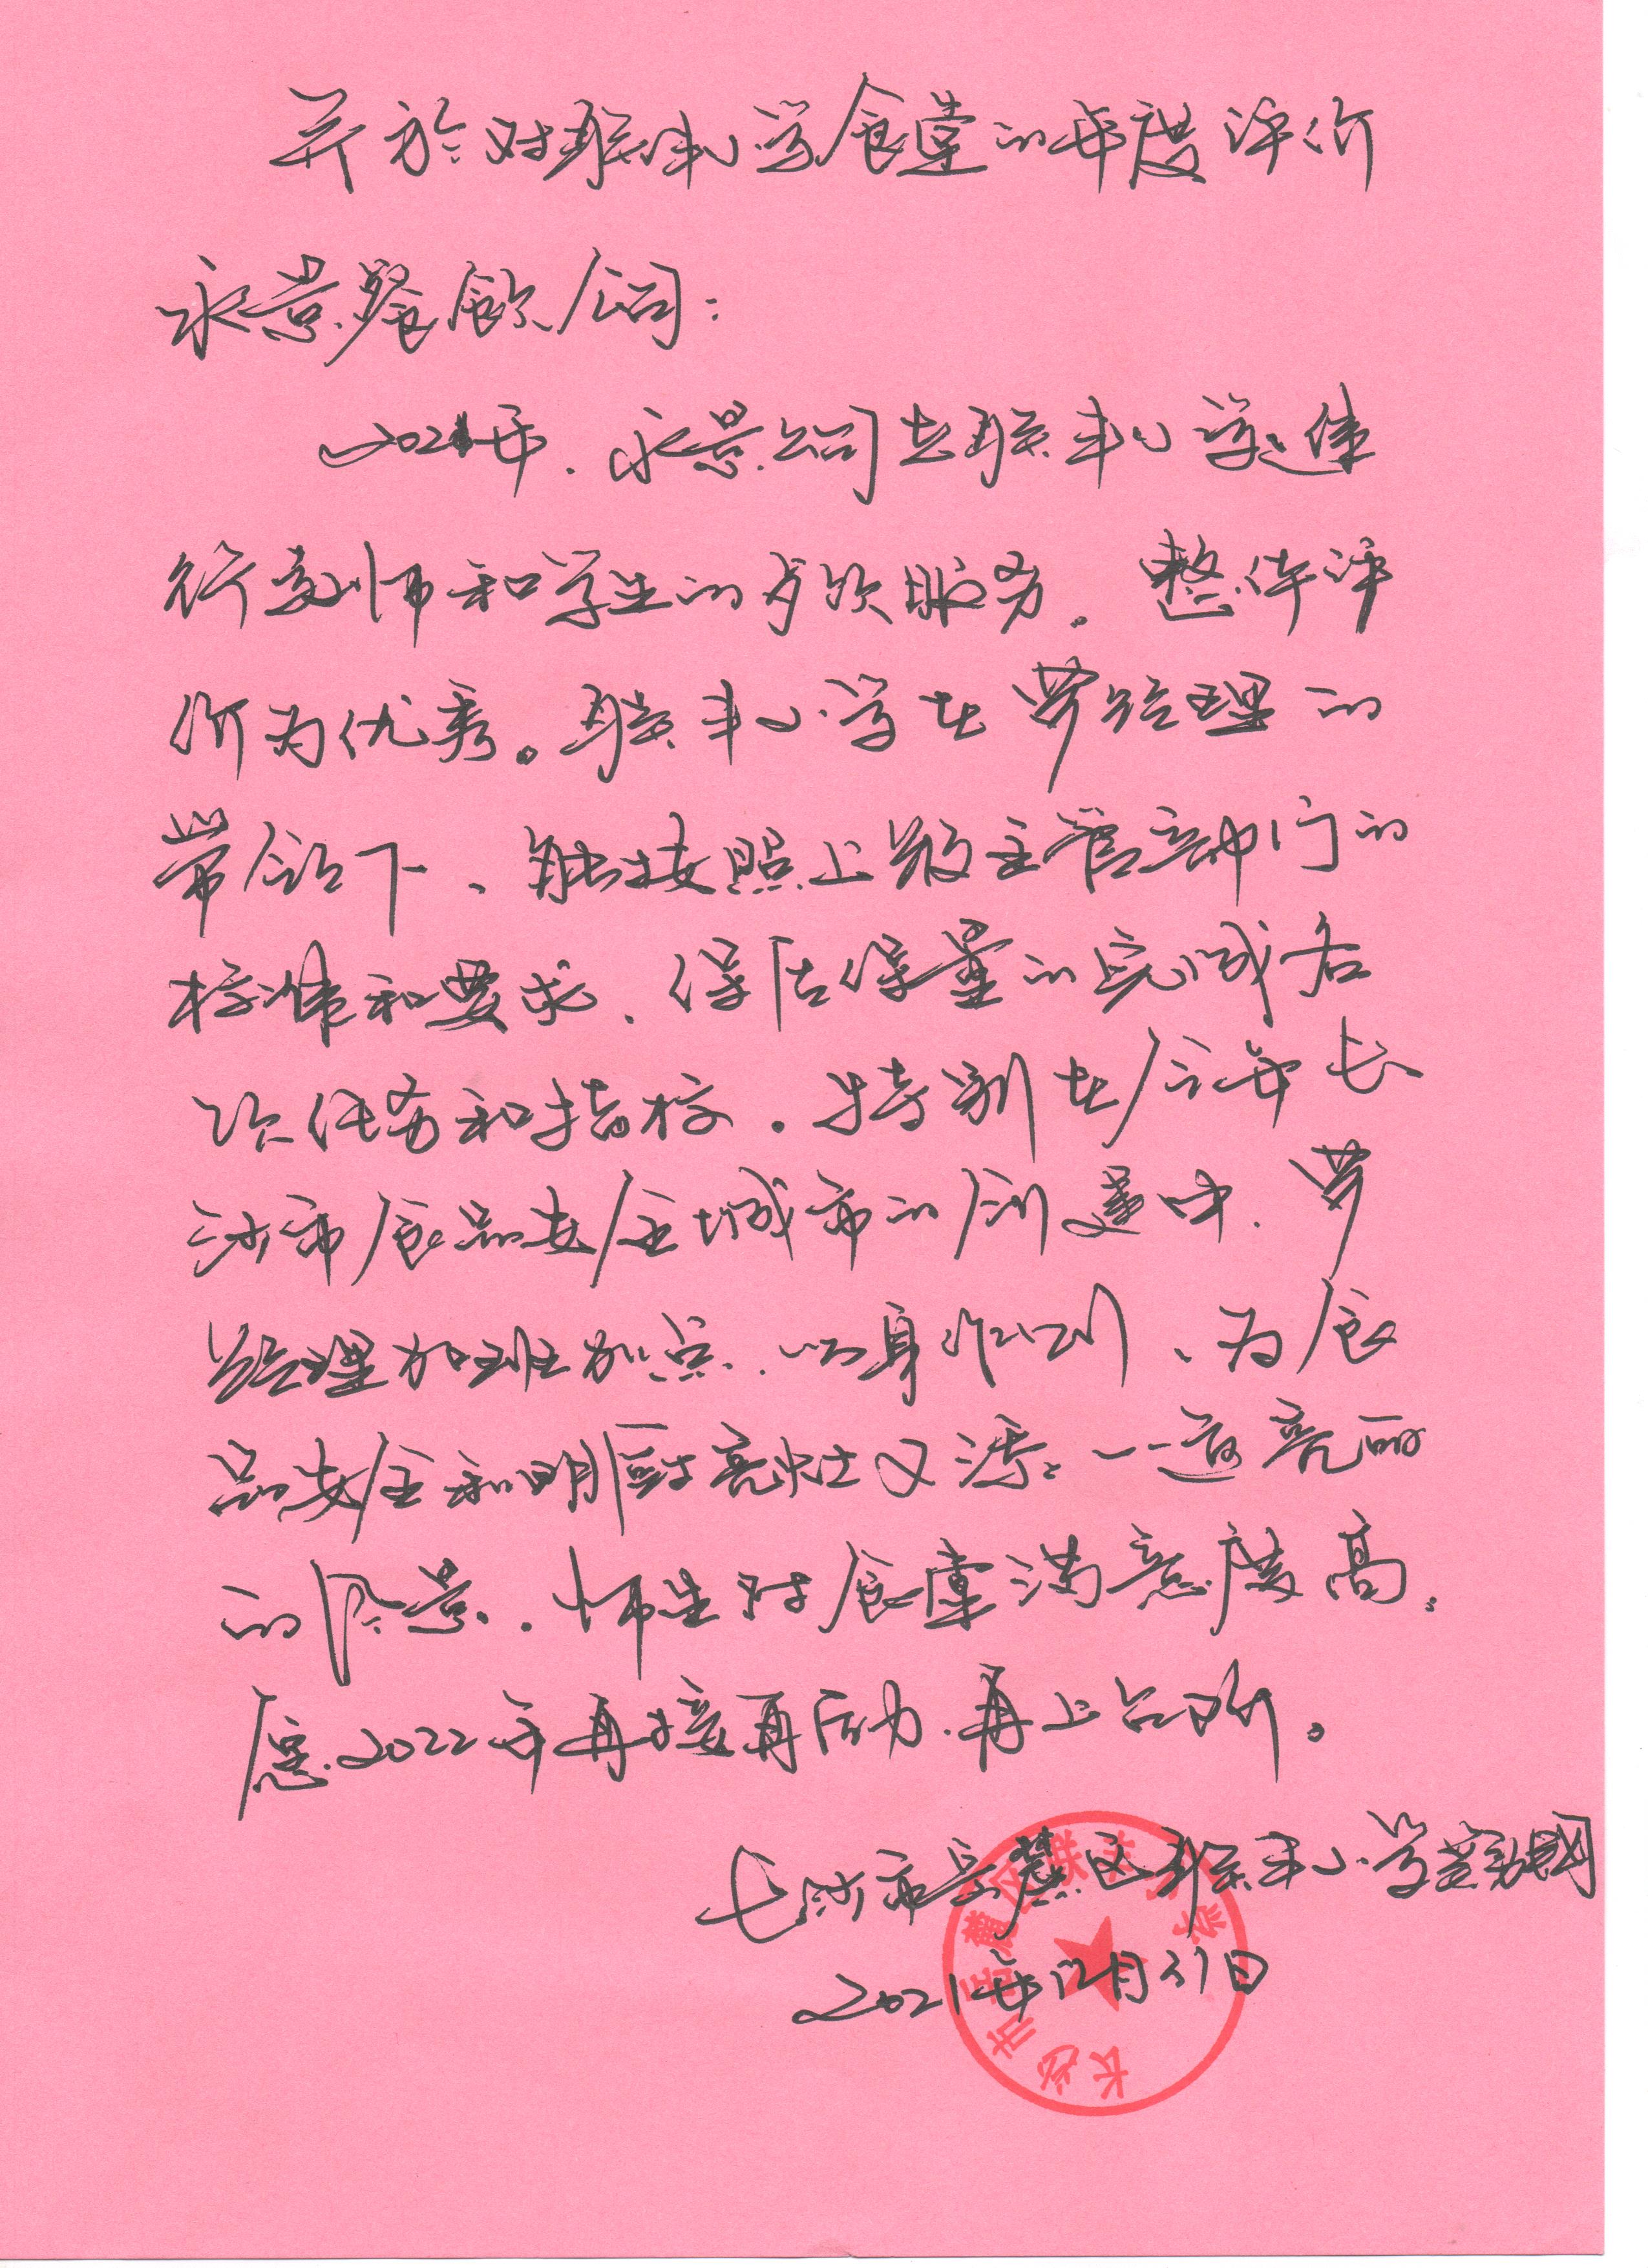 关于对联丰小学食堂的年度评价
永景餐饮公司：
2021年，永景公司在联丰小学进
行教师和学生的多项服务，整体评
价为优秀。联丰小学在罗经理的
带领下，能按照上级主管部门的
标准和要求，保质保量的完成各
项任务和指标。特别在今年长
沙市食品安全城市的创建中，罗
经理加班加点，以身作则，为食
品安全和明厨亮灶又添一道亮丽
的风景。师生对食堂满意度高。
愿2022年再接再厉，再上台阶。
长沙市岳麓区联丰小学
2021年12月31日
长沙市岳麓区联丰小学